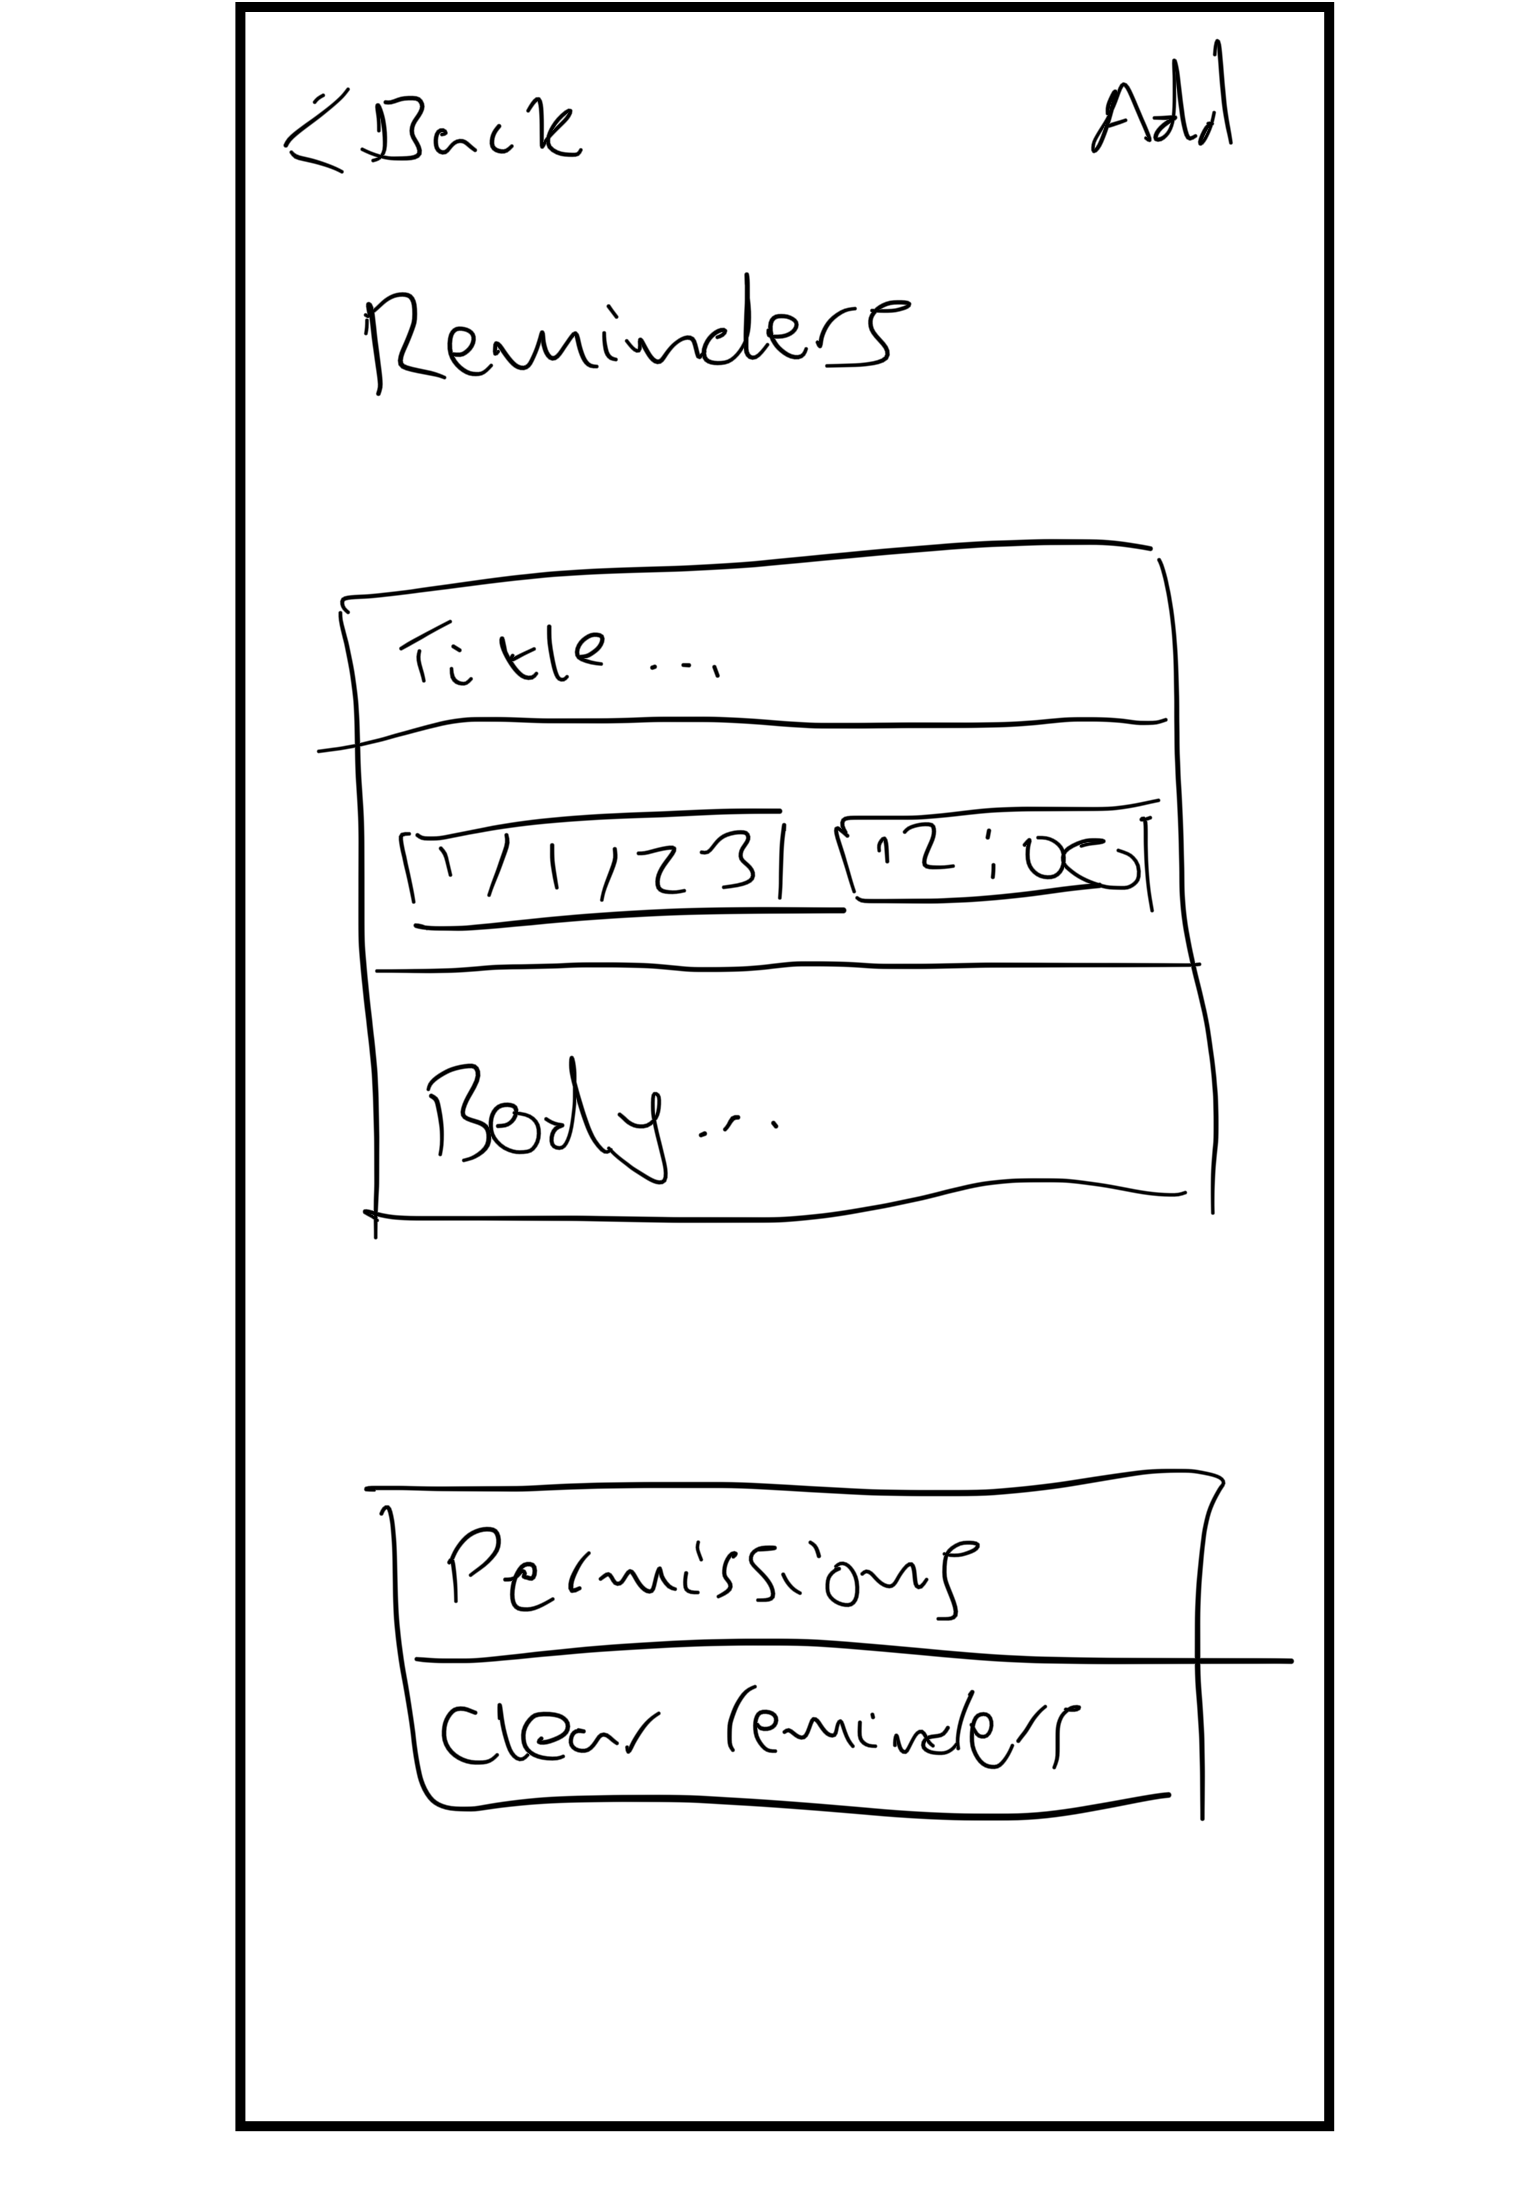 <Back Add
Reminders
Title...
1/1/23 12:00
Body...
Permissions
Clear reminders